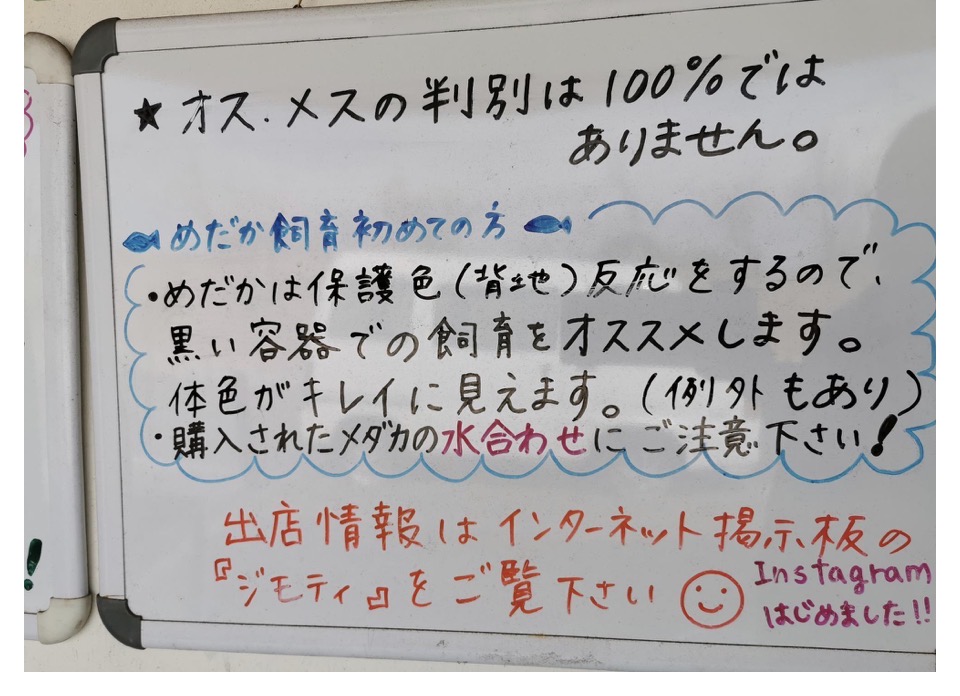 ★オス.メスの判別は100%では
ありません。
めだか飼育初めての方
・めだかは保護色(背地)反応をするので、
黒い容器での飼育をオススメします。
体色がキレイに見えます。(例外もあり)
・購入されたメダカの水合わせにご注意下さい!
出店情報はインターネット掲示板の
『ジモティ』をご覧下さい
Instagram
はじめました!!
!